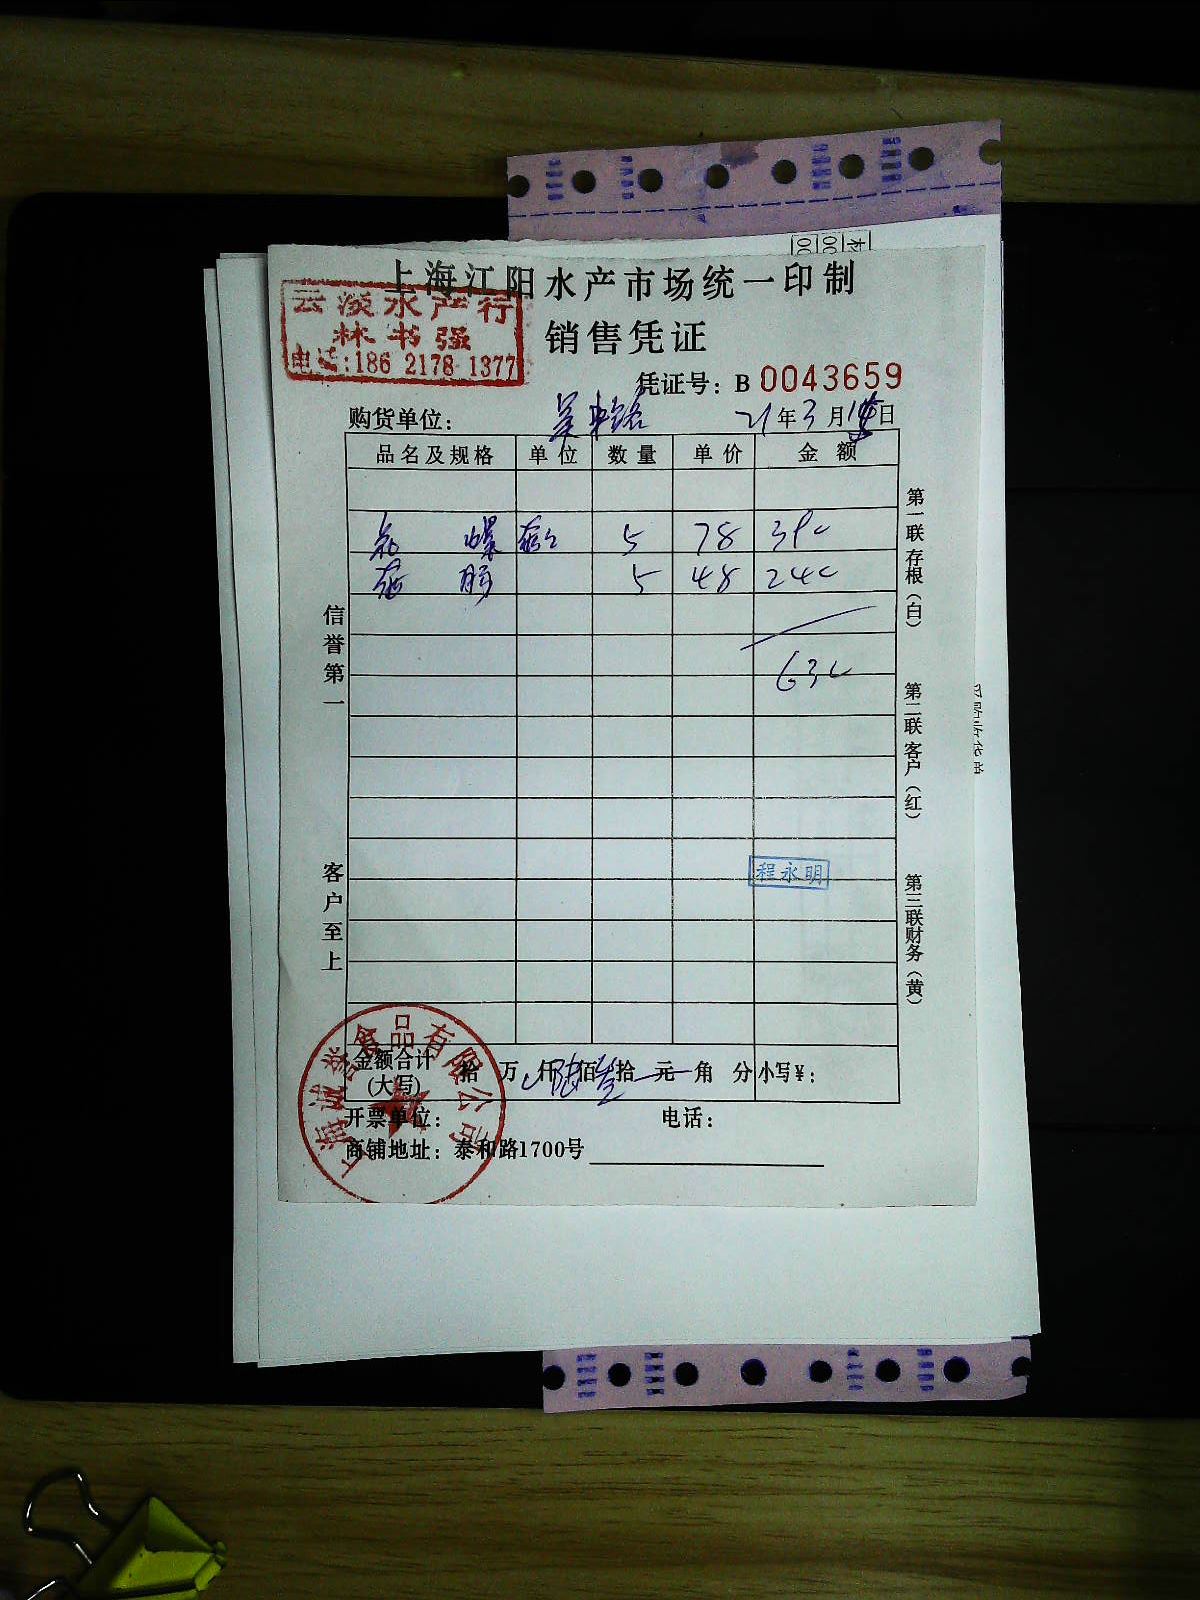 上海江阳水产市场统一印制
云淡水产行
林书强
电话:186 2178 1377
销售凭证
凭证号：B 0043659
购货单位：
21年3月 日
品名及规格 单位 数量 单价 金额
5 78 390
5 48 240
630
信誉第一
客户至上
第一联存根（白）
第二联客户（红）
第三联财务（黄）
程永明
金额合计(大写) 拾 万 仟 陆佰叁拾 元 角 分 小写￥：
开票单位： 电话：
商铺地址：泰和路1700号